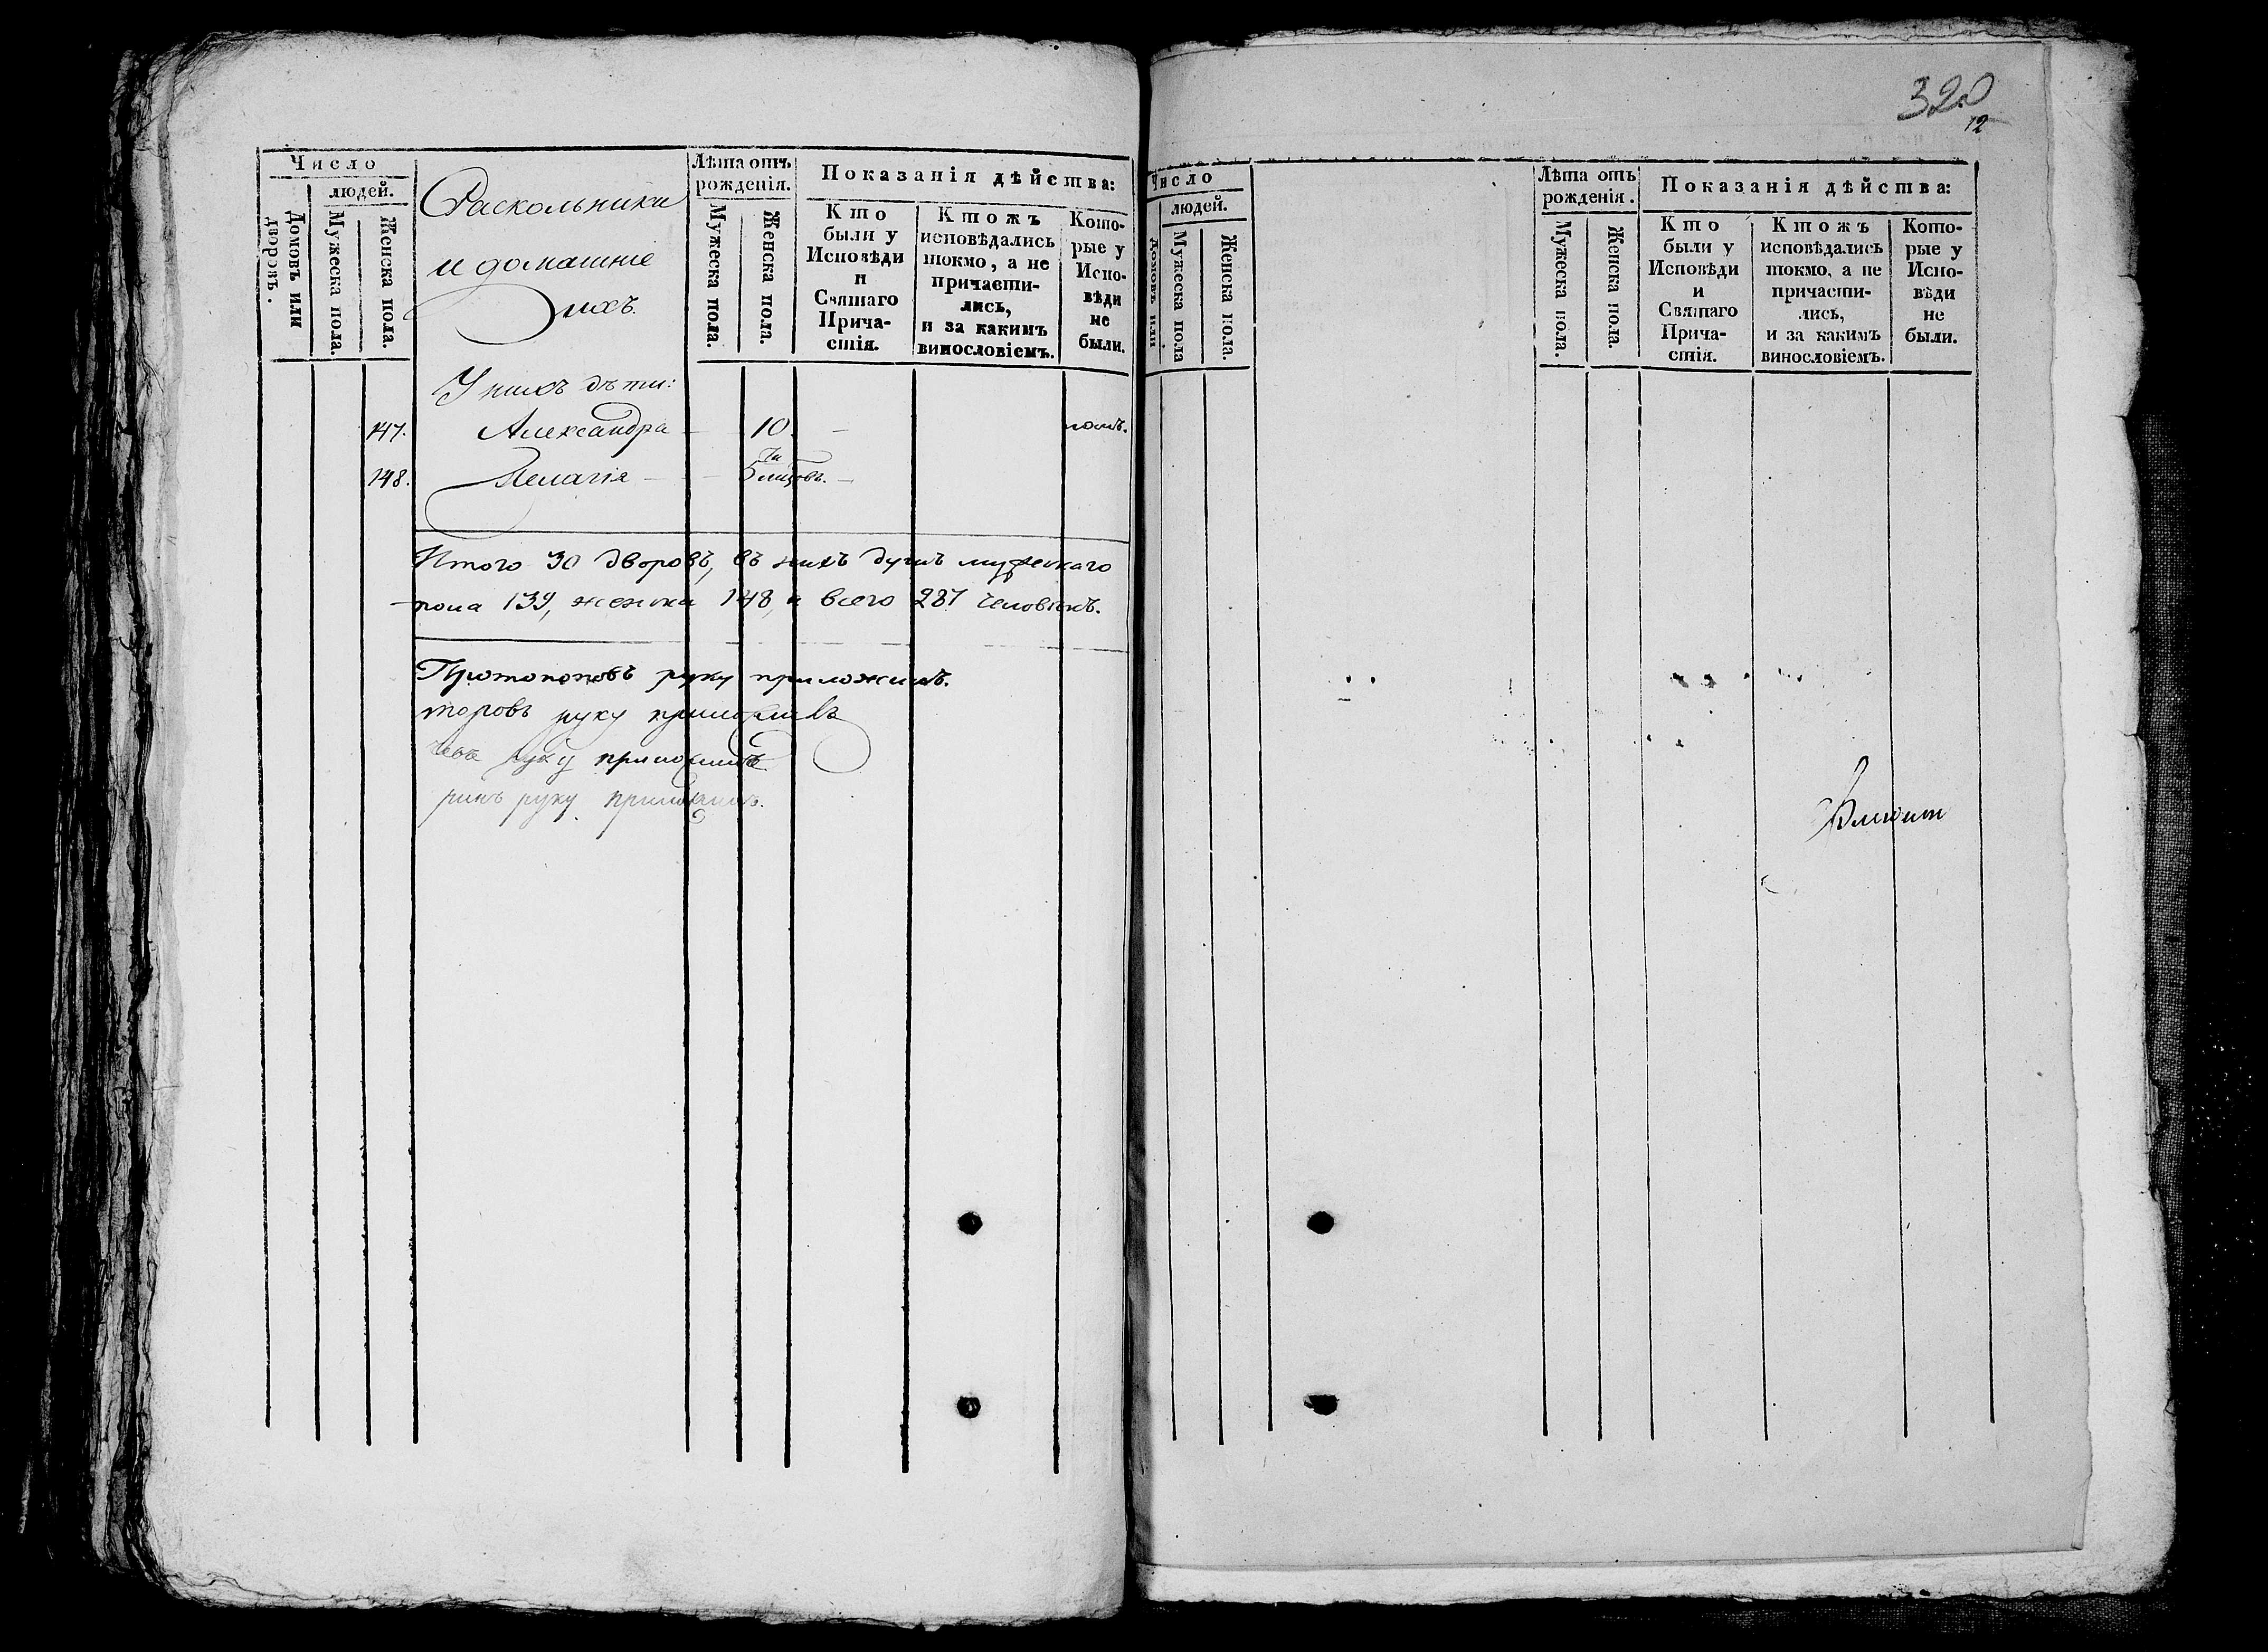 Число
людей.
Домовъ или дворовъ.
Мужеска пола.
Женска пола.
Раскольники
и домашніе
ихъ.
Лѣта отъ рожденія.
Мужеска пола.
Женска пола.
Показанія дѣйства:
Кто были у Исповѣди и Святаго Причастія.
Ктожъ исповѣдались токмо, а не причастились, и за какимъ винословіемъ.
Которые у Исповѣди не были.
У нихъ дѣти:
147. Александра — 10. —
148. Пелагія — — 5 —
Итого 30 дворовъ, въ нихъ душъ мужескаго
пола 139, женска 148, а всего 287 человѣкъ.
Протопоповъ руку приложилъ.
торовъ руку приложилъ
руку приложилъ
ринъ руку приложилъ.
320
12
Число
людей.
Домовъ или
Мужеска пола
Женска пола.
Лѣта отъ рожденія.
Мужеска пола.
Женска пола.
Показанія дѣйства:
Кто были у Исповѣди и Святаго Причастія.
Ктожъ исповѣдались токмо, а не причастились, и за какимъ винословіемъ.
Которые у Исповѣди не были.